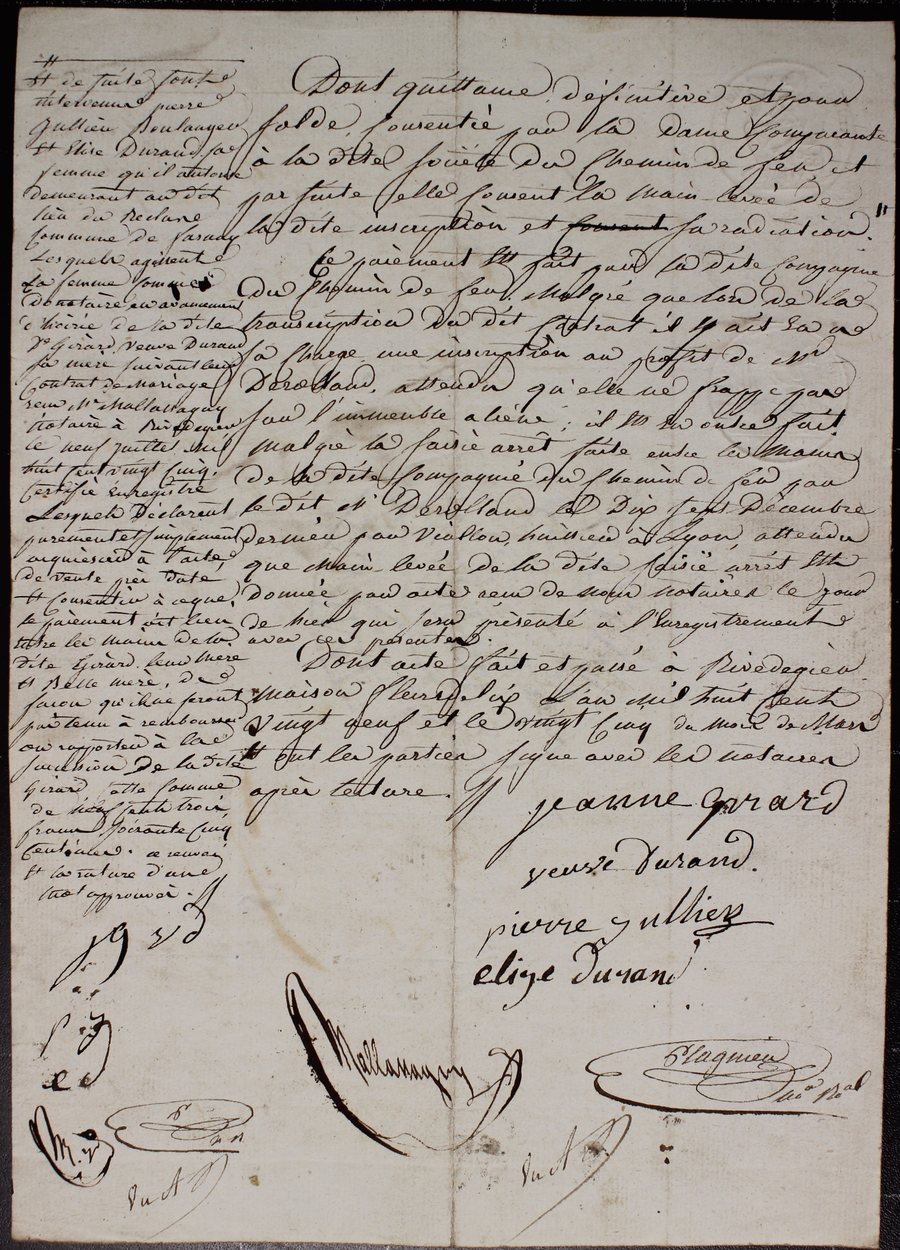 Dont quittance définitive et pour
solde, consentie par la dame Comparante
à la dite société du Chemin de feu, et
par suite elle consent la main-levée de
la dite inscription et consent sa radiation."
Ce paiement est fait par la dite Compagnie
du Chemin de feu, Malgré que lors de la
transcription du dit Contrat il y ait eu à
sa Charge une inscription au profit de Mr
Derolland, attendu qu'elle ne frappe pas
sur l'immeuble aliéné; il est en outre fait
malgré la saisie arrêt faite entre les mains
de la dite Compagnie du Chemin de feu par
le dit Mr Derolland le Dix sept Décembre
dernier par Viallon huissier à Lyon, attendu
que main-levée de la dite saisie arrêt est
donnée par acte reçu de nous notaires le jour
de hier qui sera présenté à l'Enregistrement
avec ces présentes.
Dont acte fait et passé à Rivedegier
maison fleurdelix L'an mil huit cent
vingt neuf et le vingt Cinq du mois de Mars
et ont les parties signé avec les notaires
après lecture.
#
Et de suite sont
intervenus pierre
Jullien Boulanger
Et Elise Durand sa
femme qu'il autorise
demeurant au dit
lieu du Reclus
Commune de
Lesquels agissent
La femme Comme
donataire en avancement
d'hoirie de la dite
Ve Girard Veuve Durand
sa mère suivant leur
Contrat de Mariage
reçu Me Mallassagny
notaire à Rivedegier
le neuf juillet mil
huit cent vingt Cinq.
Certifié Enregistré
Lesquels Déclarent
purement et simplement
acquiescer à l'acte
de vente per Daté
Et Consentir à ce que
le paiement ait lieu
entre les mains de la
dite Girard leur mère
Et Belle mère, de
façon qu'ils ne seront
pas tenu à rembourser
ou rapporter à la
succession de la dite
Girard cette somme
de neuf cents trois
francs, soixante Cinq
Centimes. Ce renvoi
Et la rature d'un
mot approuvés.
jeanne girard
veuve durand.
pierre jullien
elize durand
J g v d
P. J
e d
Mallassagny
Plagnieu
no. Ro.al
M.
P